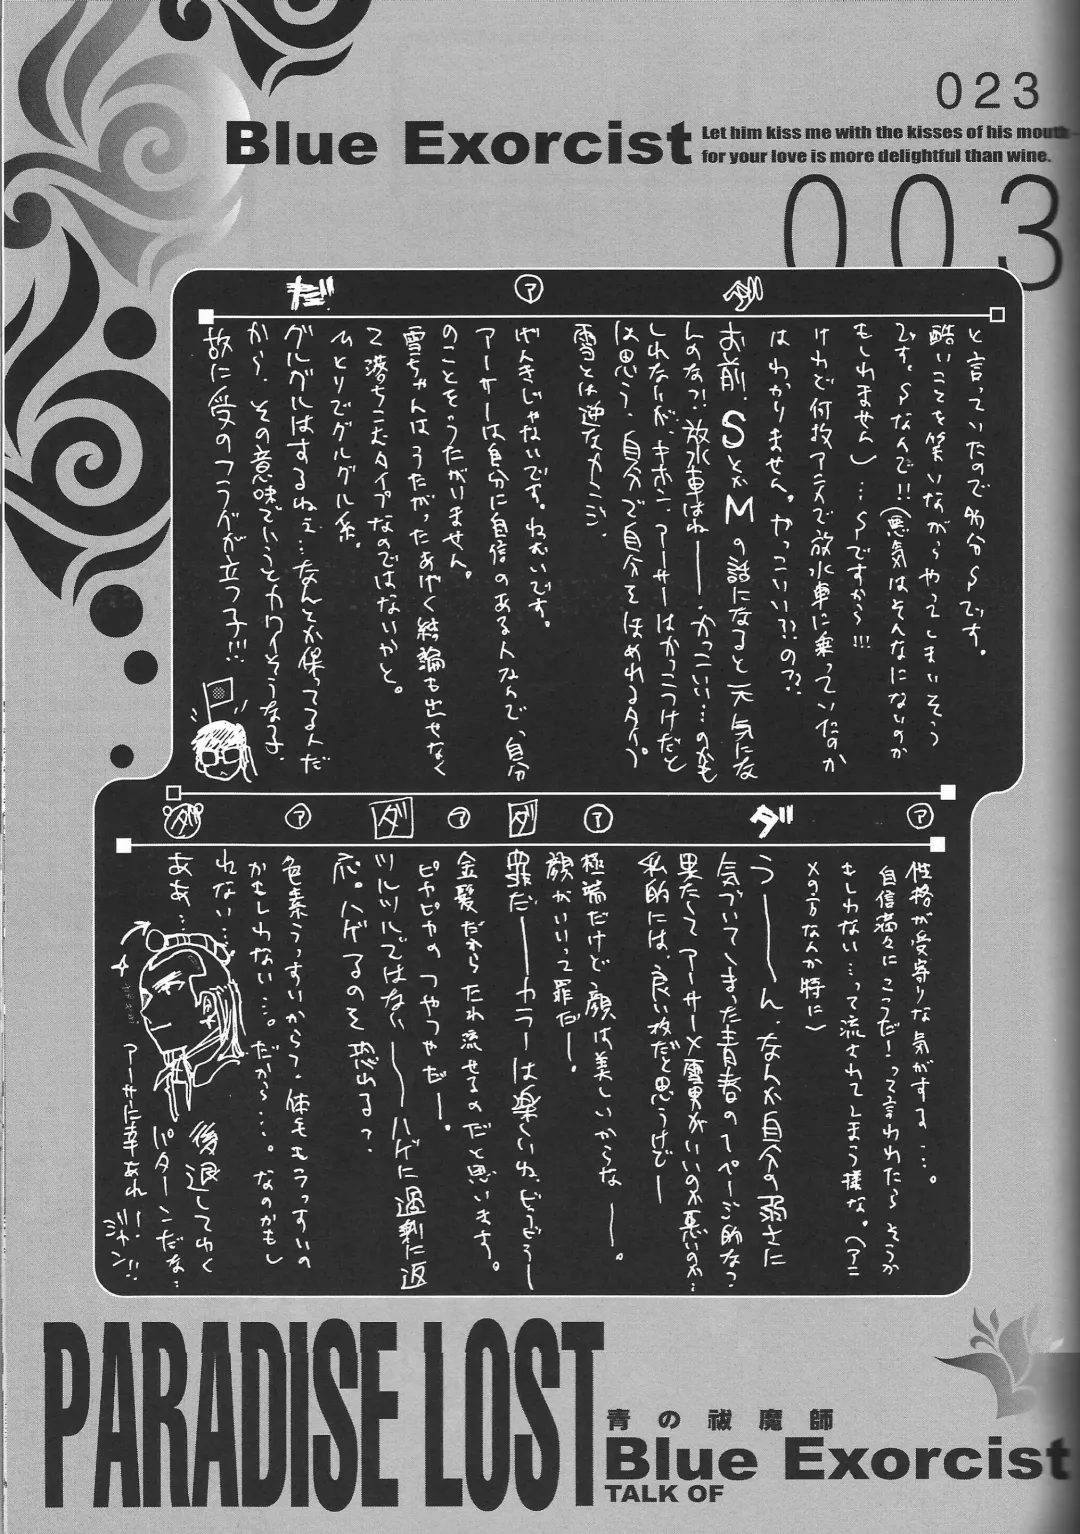 023
Blue Exorcist
Let him kiss me with the kisses of his mouth-
for your love is more delightful than wine.
003
と言っていたので多分Sです。
酷いことを笑いながらやってしまいそう
です。Sなんで!!(悪気はそんなにないのか
もしれません)…Sですから…!!!
けれど何故アニメで放水車に乗っていたのか
はわかりません。かっこいい??の??
ダ
お前、SとかMの話になると元気にな
んのな?!放水車はねーー、かっこいい…のかも
しれないが、キホン、アーサーはかっこつけだと
は思う、自分で自分をほめれるタイプ。
雪とは逆なカンジ。
ア
げんきじゃないです。ねむいです。
アーサーは自分に自信のある人なんで、自分
のことをうたがいません。
雪ちゃんはうたがったあげく結論も出せなく
て落ちこむタイプなのではないかと。
ひとりでグルグル系。
だ
グルグルはするねぇ…なんとか保ってるんだ
から、その意味でいうとカワイそうな子、
故に受のフラグが立つ子!!!
ア
性格が受寄りな気がする…。
自信満々にこうだ!って言われたらそうか
もしれない…って流されてしまう様な。(アニ
メの方なんか特に)
ダ
うーーーん、なんか自分の弱さに
気づいてしまった青春の1ページ的な?
果たしてアーサー×雪男がいいのか悪いのか…
私的には、良い攻だと思うけどー
ア
極端だけど顔は美しいからなーー。
顔がいいって罪だー。
ダ
罪だーーカラーは楽しいね、どうどうー
ア
金髪だからたれ流せるのだと思います。
ピカピカのつやつやだー。
ダ
ツルツルではないーーハゲに過剰に返
応。ハゲるのを恐れる?
ア
色素うっすいからて、体毛もうっすいの
かもしれない…。だから…。なのかもし
れない…
ダ
ああ…
後退してゆく
パターンだな…
アーサーに幸あれ!
ジャン!!
PARADISE LOST
青の祓魔師
Blue Exorcist
TALK OF